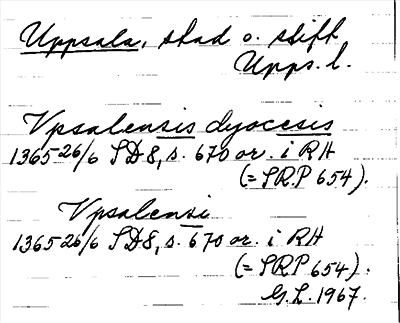 Uppsala, stad o. stift
Upps. l.
Vpsalensis dyocesis
1365 26/6 SD8, s. 670 or. i RH
(= SRP 654).
Vpsalensi
1365 26/6 SD8, s. 670 or. i RH
(= SRP 654).
G.L. 1967.